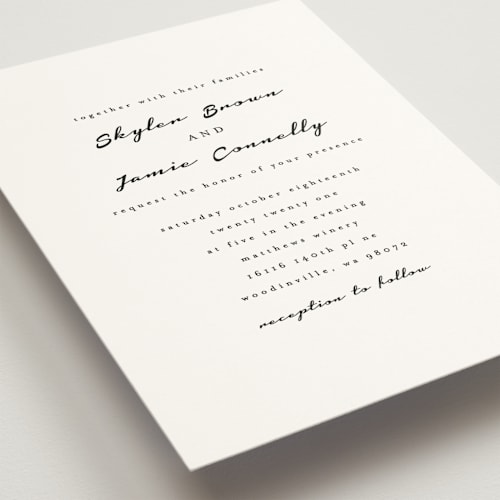 together with their families
Skylen Brown
AND
Jamie Connelly
request the honor of your presence
saturday october eighteenth
twenty twenty one
at five in the evening
matthews winery
16116 140th pl ne
woodinville, wa 98072
reception to follow